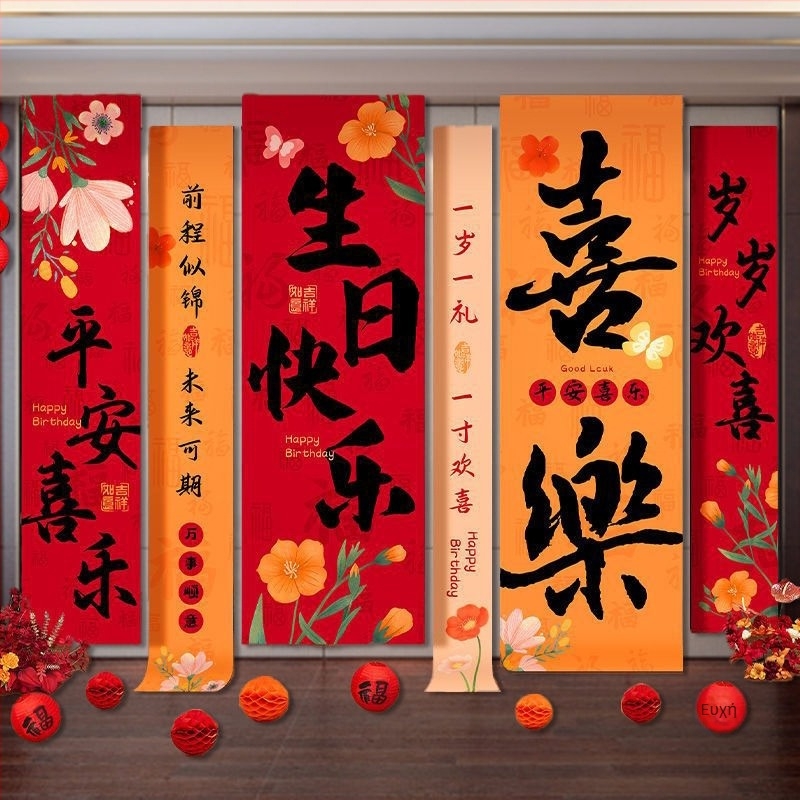 平安喜乐
Happy
Birthday
吉祥
如意
前程似锦
未来可期
万事顺意
生日快乐
吉祥
如意
Happy
Birthday
一岁一礼
一寸欢喜
Happy
Birthday
喜樂
Good Lcuk
平安喜乐
岁岁欢喜
Happy
Birthday
福
福
Ευχή